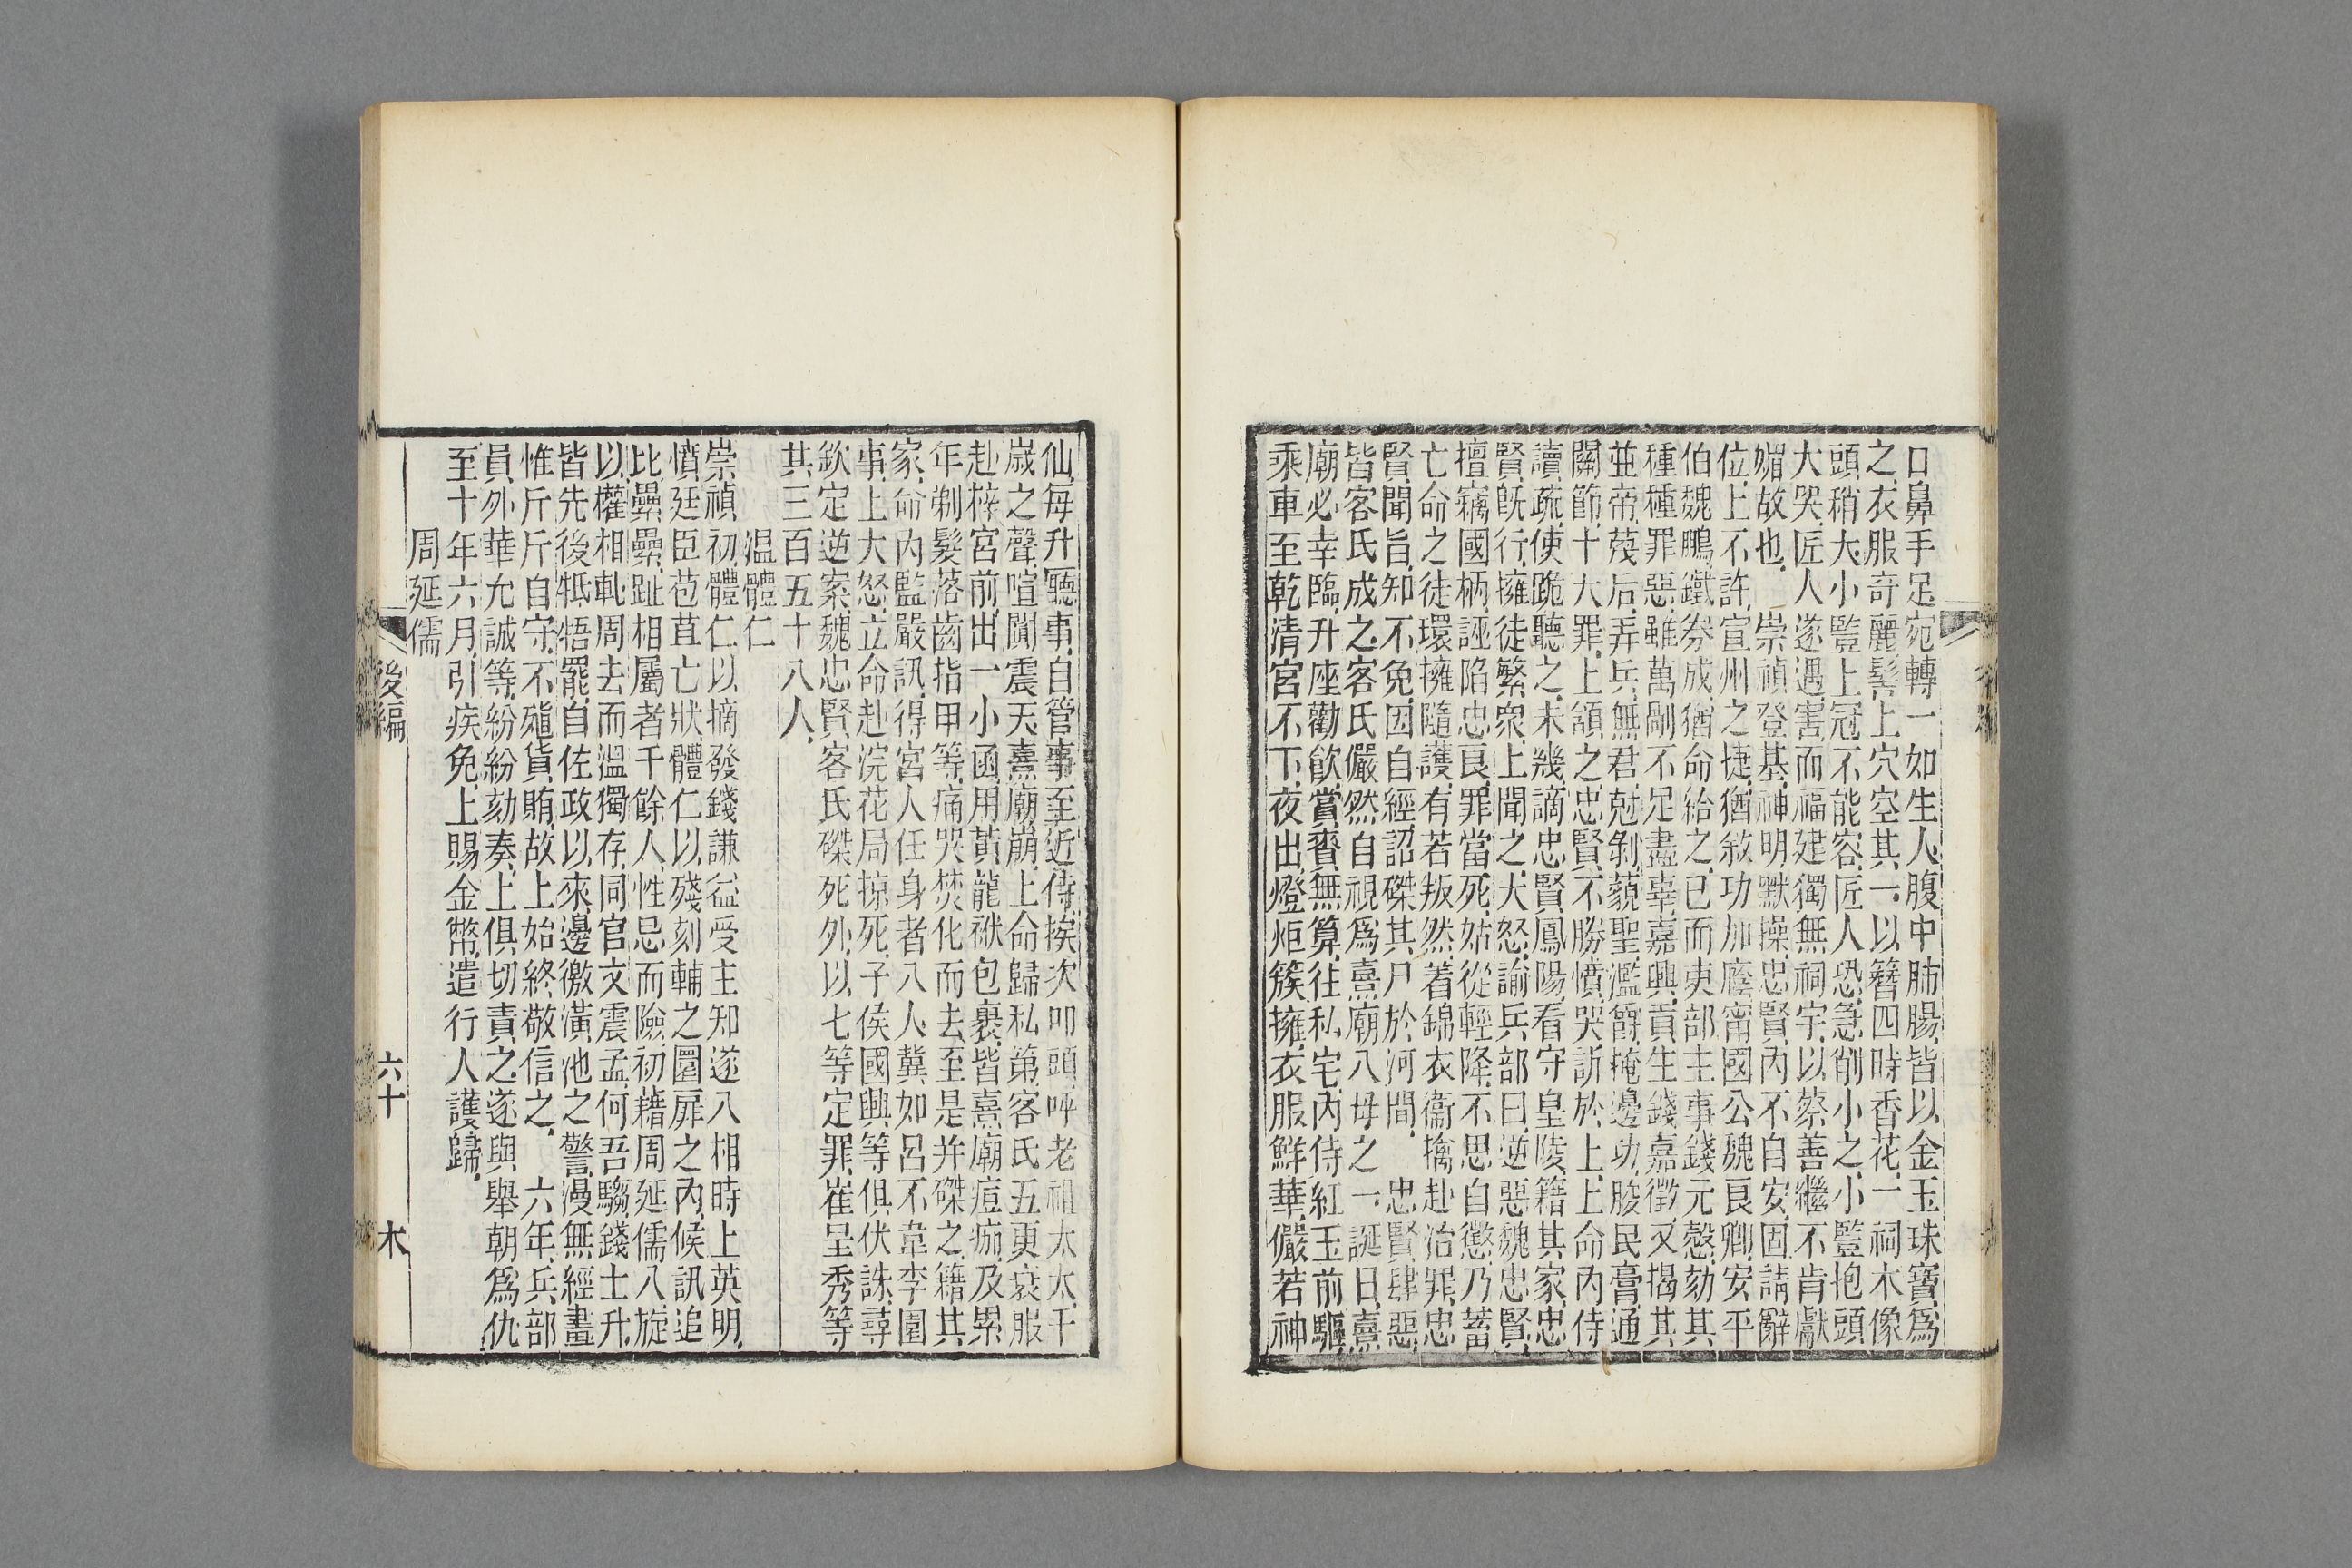 口鼻手足宛轉一如生人腹中肺腸皆以金玉珠寶爲
之衣服奇麗髻上穴空其一以簪四時香花一祠木像
頭稍大小豎上冠不能容匠人恐急削小之小豎抱頭
大哭匠人遂遇害而福建獨無祠宇以蔡善繼不肯獻
媚故也　崇禎登基神明默操忠賢內不自安固請辭
位上不許宣州之捷猶敘功加廕甯國公魏良卿安平
伯魏鵬鐵劵成猶命給之已而吏部主事錢元慤劾其
種種罪惡雖萬剮不足盡辜嘉興貢生錢嘉徵又揭其
並帝蔑后弄兵無君尅剝藐聖濫爵掩邊功朘民膏通
關節十大罪上頷之忠賢不勝憤哭訴於上上命內侍
讀疏使跪聽之未幾謫忠賢鳳陽看守皇陵籍其家忠
賢旣行擁徒繁衆上聞之大怒諭兵部曰逆惡魏忠賢
擅竊國柄誣陷忠良罪當死姑從輕降不思自懲乃蓄
亡命之徒環擁隨護有若叛然着錦衣衞擒赴治罪忠
賢聞旨知不免因自經詔磔其尸於河間　忠賢肆惡
皆客氏成之客氏儼然自視爲熹廟八母之一誕日熹
廟必幸臨升座勸飮賞賚無算往私宅內侍紅玉前驅
乘車至乾清宮不下夜出燈炬簇擁衣服鮮華儼若神
仙每升廳事自管事至近侍挨次叩頭呼老祖太太千
歲之聲喧闐震天熹廟崩上命歸私第客氏五更衰服
赴梓宮前出一小函用黃龍袱包裹皆熹廟痘痂及累
年剃髮落齒指甲等痛哭焚化而去至是并磔之籍其
家命內監嚴訊得宮人任身者八人冀如呂不韋李園
事上大怒立命赴浣花局掠死子侯國興等俱伏誅尋
欽定逆案魏忠賢客氏磔死外以七等定罪崔呈秀等
其三百五十八人
温體仁
崇禎初體仁以摘發錢謙益受主知遂入相時上英明
憤廷臣苞苴亡狀體仁以殘刻輔之圜扉之內候訊追
比纍纍趾相屬者千餘人性忌而險初藉周延儒入旋
以權相軋周去而溫獨存同官文震孟何吾騶錢士升
皆先後牴牾罷自佐政以來邊徼潢池之警漫無經畫
惟斤斤自守不殖貨賄故上始終敬信之　六年兵部
員外華允誠等紛紛劾奏上俱切責之遂與舉朝爲仇
至十年六月引疾免上賜金幣遣行人護歸
周延儒
後編
六十
木